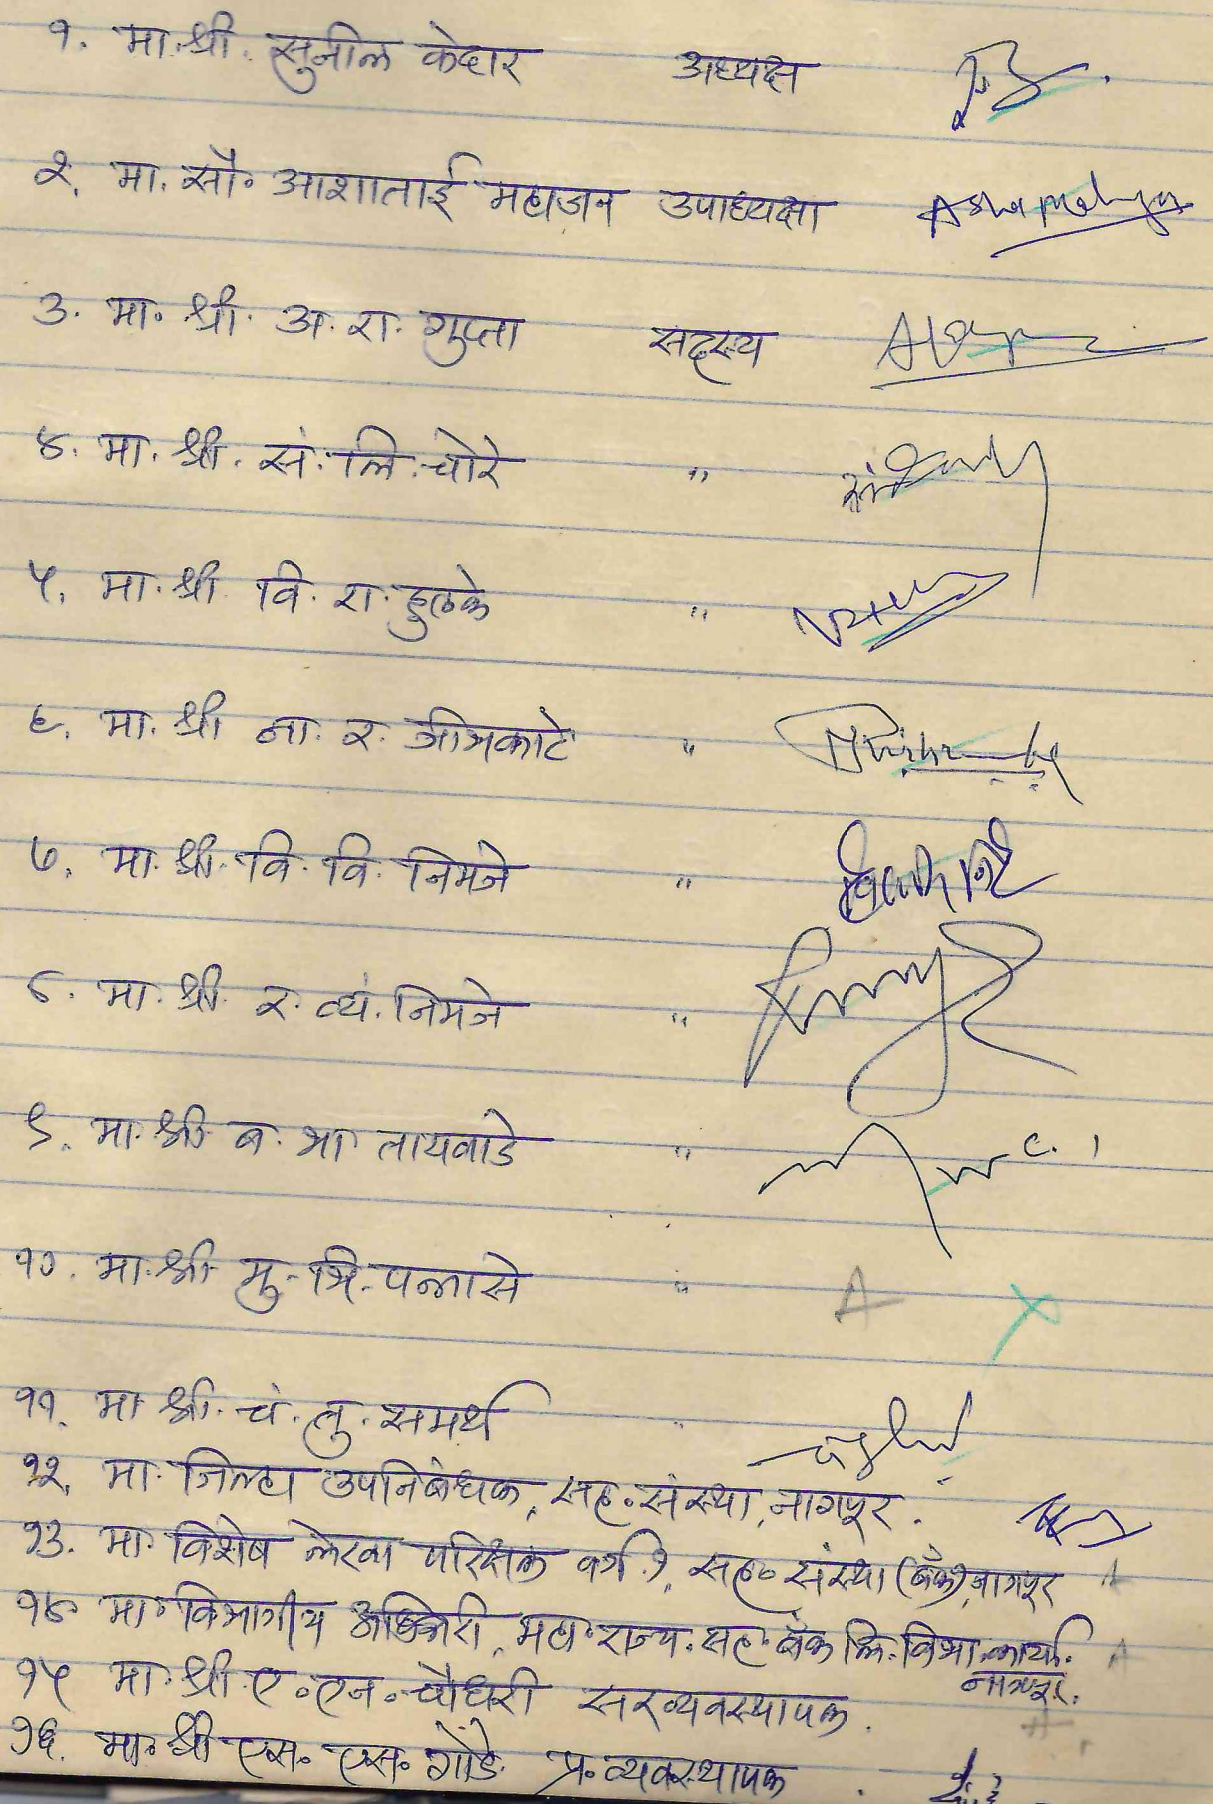 १. मा.श्री. सुनील केदार अध्यक्ष
२. मा. सौ० आशाताई महाजन उपाध्यक्षा
३. मा० श्री. अ. रा. गुप्ता सदस्य
४. मा. श्री. सं. लि. चोरे "
५. मा. श्री वि. रा. हुलके "
६. मा. श्री ना. र. "
७. मा. श्री. वि. वि. निमजे "
८. मा. श्री. र. व्यं. निमजे "
९. मा. श्री. ब. भा तायवाडे "
१०. मा. श्री मु. त्रि. पन्नासे " A X
११. मा श्री. चं. लु. समर्थ "
१२. मा. जिल्हा उपनिबंधक, सह. संस्था, नागपूर.
१३. मा. विशेष लेखा परिक्षक वर्ग १, सह० संस्था (बँक) नागपूर A
१४ मा० विभागीय अधिकारी, महा० राज्य. सह. बँक लि. विभा. कार्या. A
नागपूर.
१५ मा. श्री. ए० एन० चौधरी सरव्यवस्थापक. A
१६. मा० श्री एस० एस० गोडे. प्र. व्यवस्थापक .